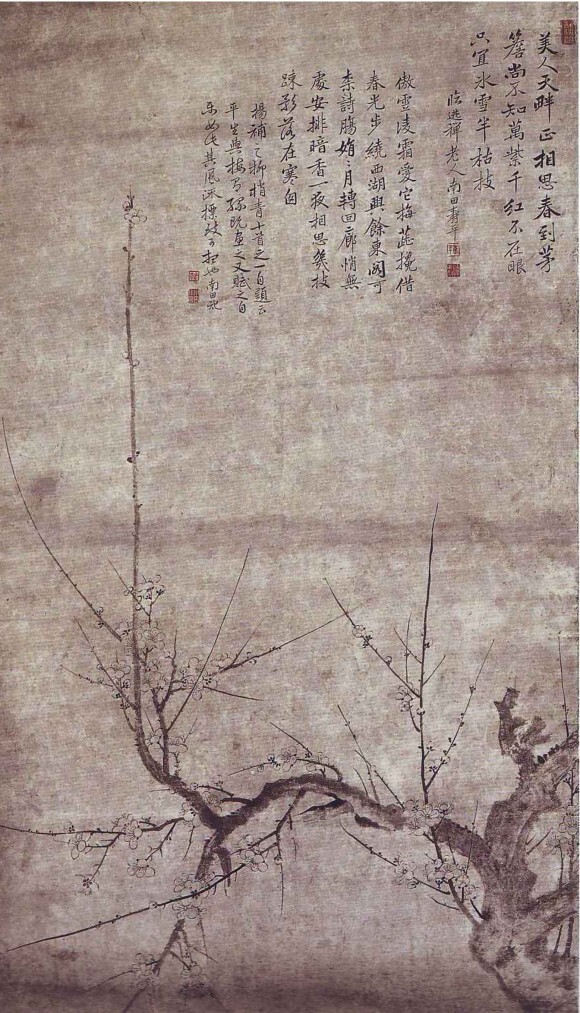 美人天畔正相思春到茅
簷尚不知萬紫千紅不在眼
只宜冰雪半枯枝
臨逃禪老人南田壽平
傲雪凌霜愛它梅蕊攙借
春光步繞西湖興餘東閣可
柰詩腸娟〻月轉回廊悄無
處安排暗香一夜相思幾枝
疎影落在寒囪
楊補之柳梢青十首之一自題云
平生與梅有緣既畫之又賦之自
樂如此其風流標致可想也南田記